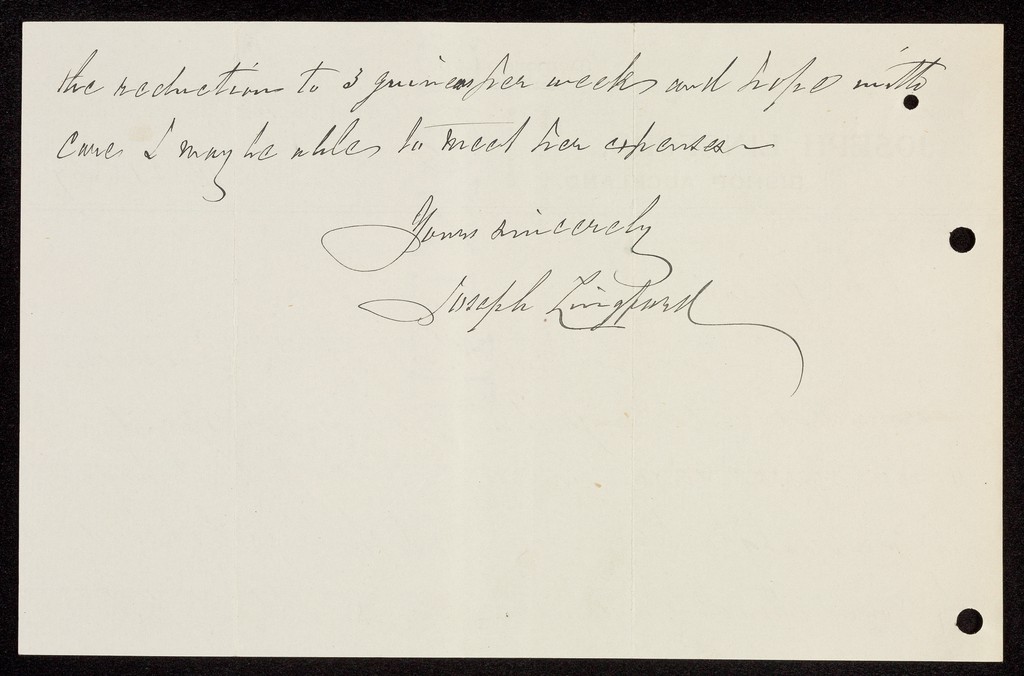 the reduction to 3 guineas per week and hope with
care I may be able to meet her expenses
Yours sincerely
Joseph Lingford